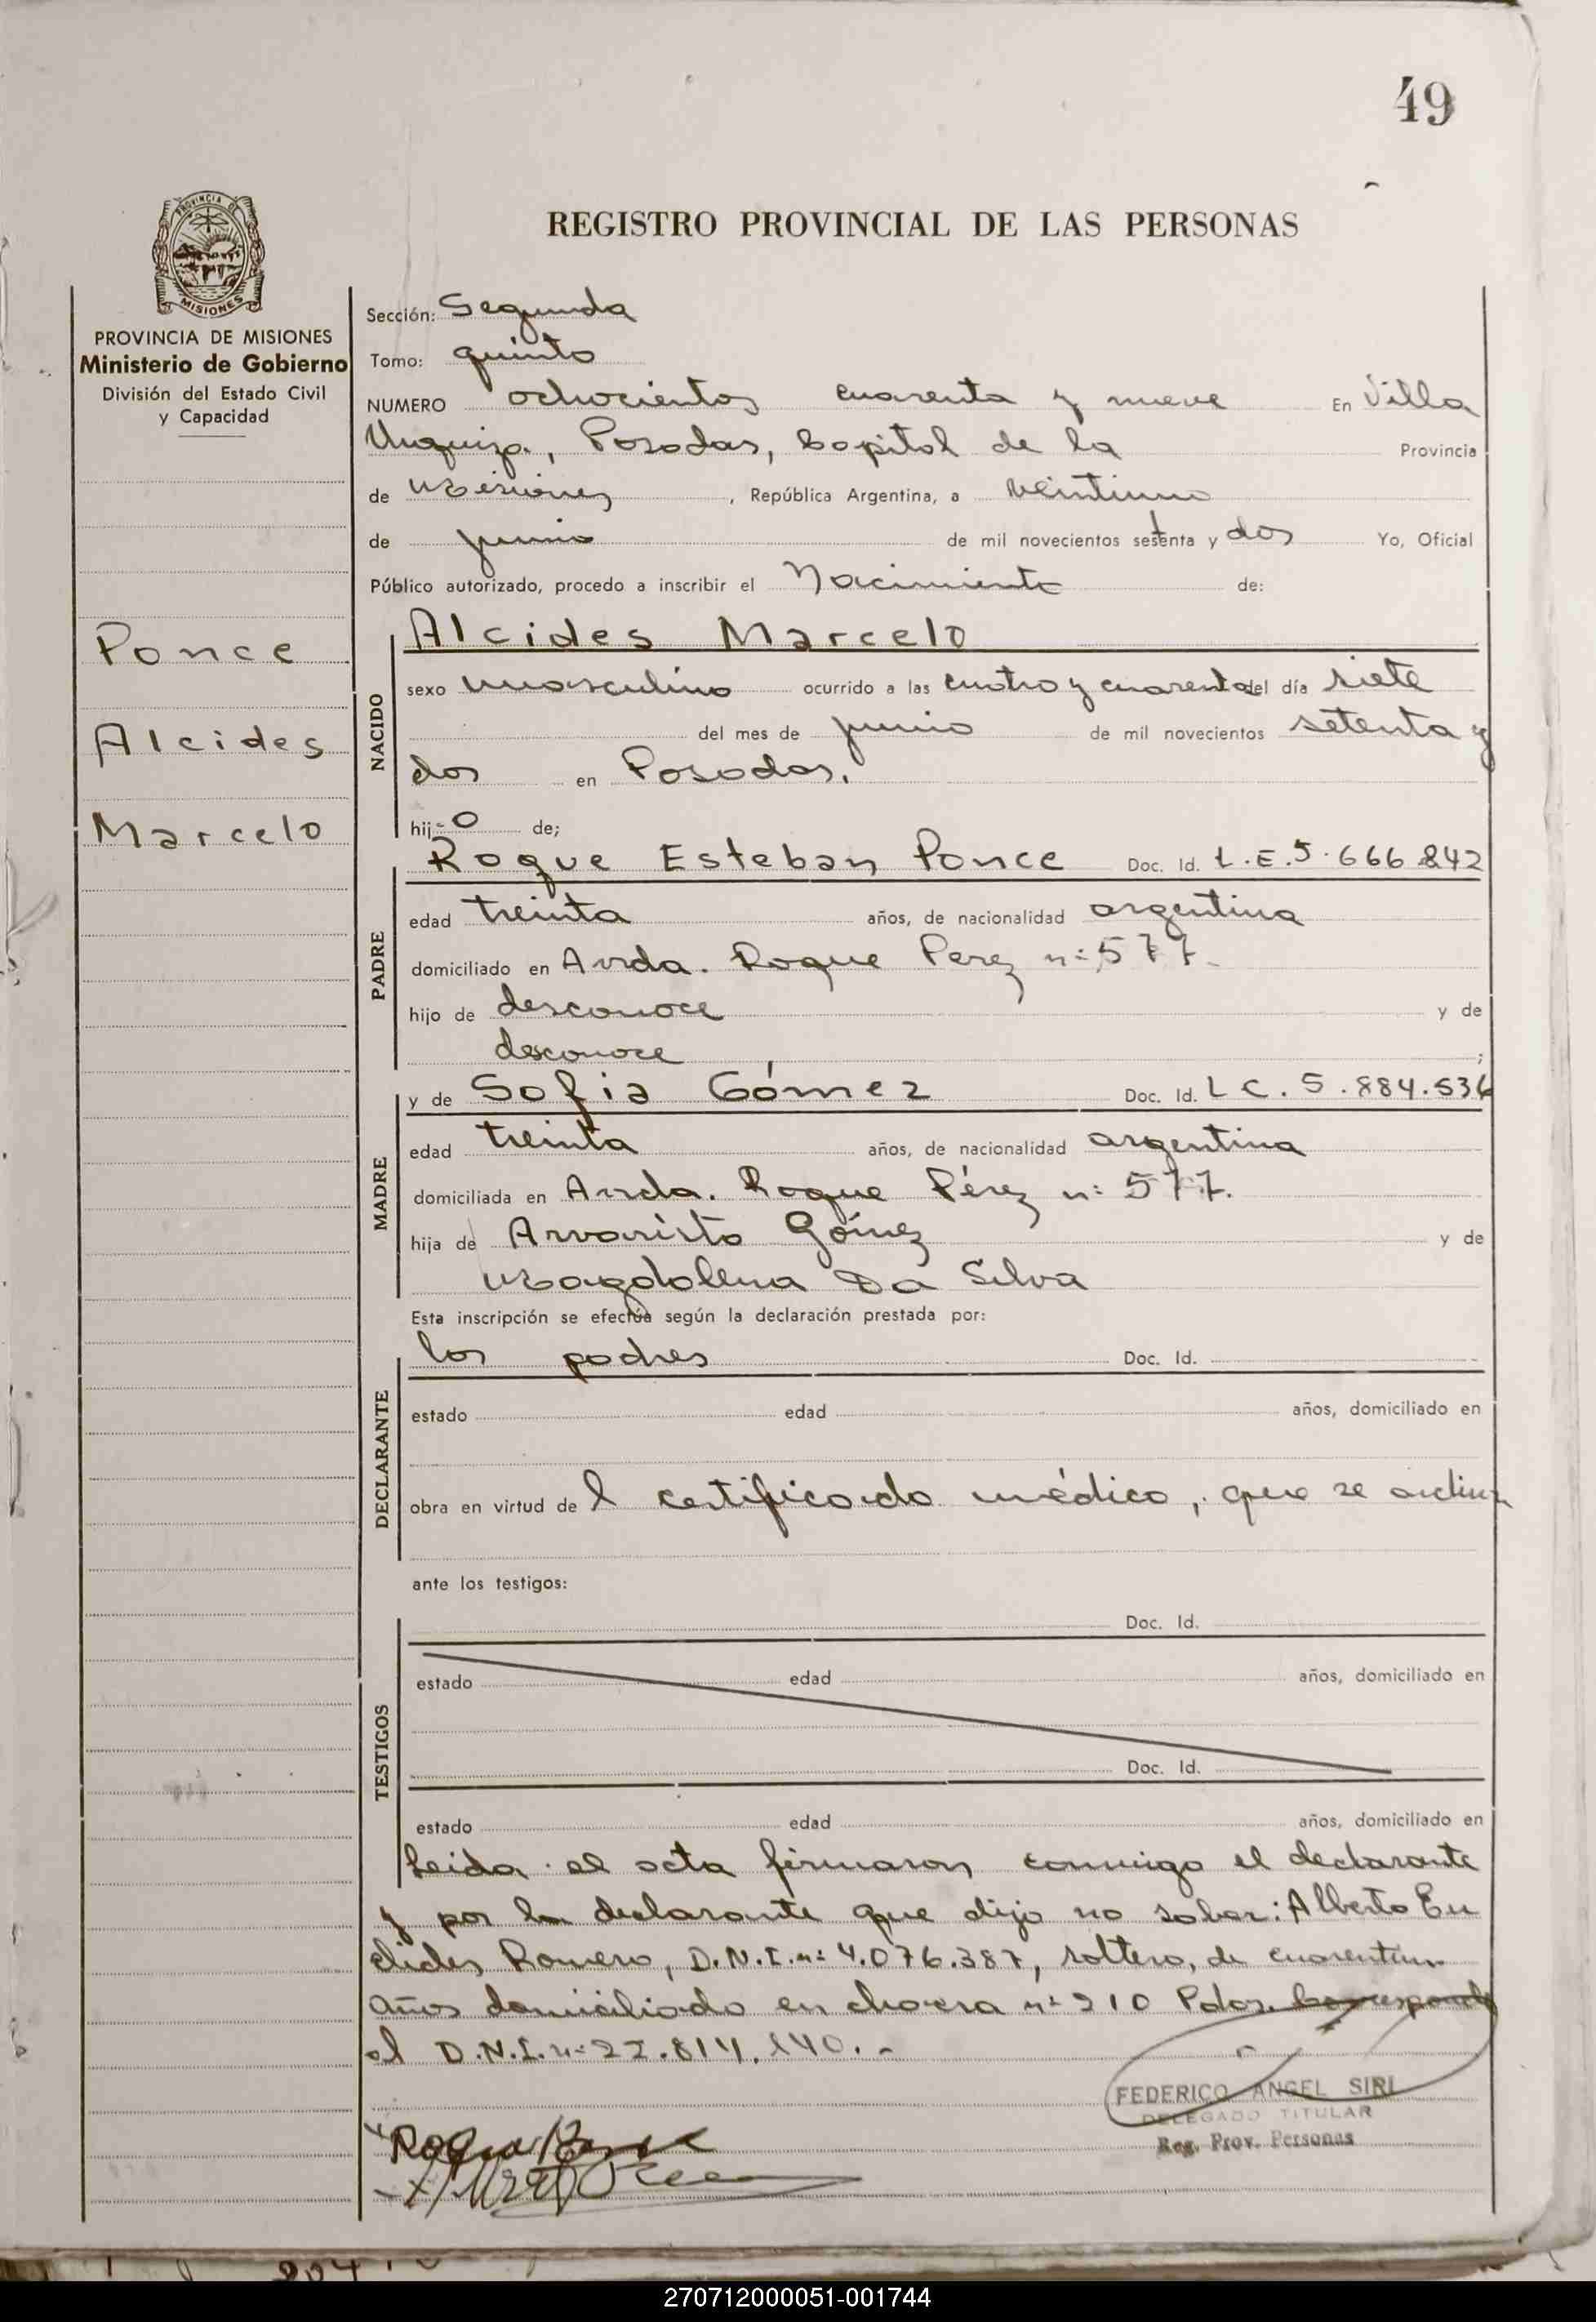 49
PROVINCIA DE
MISIONES
REGISTRO PROVINCIAL DE LAS PERSONAS
PROVINCIA DE MISIONES
Ministerio de Gobierno
División del Estado Civil
y Capacidad
Ponce
Alcides
Marcelo
Sección: Segunda
Tomo: quinto
NUMERO ochocientos cuarenta y nueve En Villa
Urquiza, Posadas, Capital de la Provincia
de Misiones, República Argentina, a veintiuno
de junio de mil novecientos setenta y dos Yo, Oficial
Público autorizado, procedo a inscribir el Nacimiento de:
NACIDO
Alcides Marcelo
sexo masculino ocurrido a las cuatro y cuarenta del día siete
del mes de junio de mil novecientos setenta y
dos en Posadas.
hijo de;
PADRE
Roque Esteban Ponce Doc. Id. L.E.5.666.842
edad treinta años, de nacionalidad argentina
domiciliado en Avda. Roque Perez n: 577.
hijo de desconoce y de
desconoce ;
MADRE
y de Sofia Gómez Doc. Id. LC. 5.884.536
edad treinta años, de nacionalidad argentina
domiciliada en Avda. Roque Pérez n: 577.
hija de Arvaristo Gómez y de
Magdalena Da Silva
Esta inscripción se efectúa según la declaración prestada por:
DECLARANTE
los padres Doc. Id.
estado edad años, domiciliado en
obra en virtud del certificado médico, que se
ante los testigos:
TESTIGOS
Doc. Id.
estado edad años, domiciliado en
Doc. Id.
estado edad años, domiciliado en
Leida el acta firmaron conmigo el declarante
y por la declarante que dijo no saber: Alberto Eu
clides Romero, D.N.I.n: 4.076.387, soltero, de cuarentiun
años domiciliado en chacra n: 210 Pdas. Corresponde
el D.N.I.n: 22.814.140.-
FEDERICO ANGEL SIRI
DELEGADO TITULAR
Reg. Prov. Personas
270712000051-001744